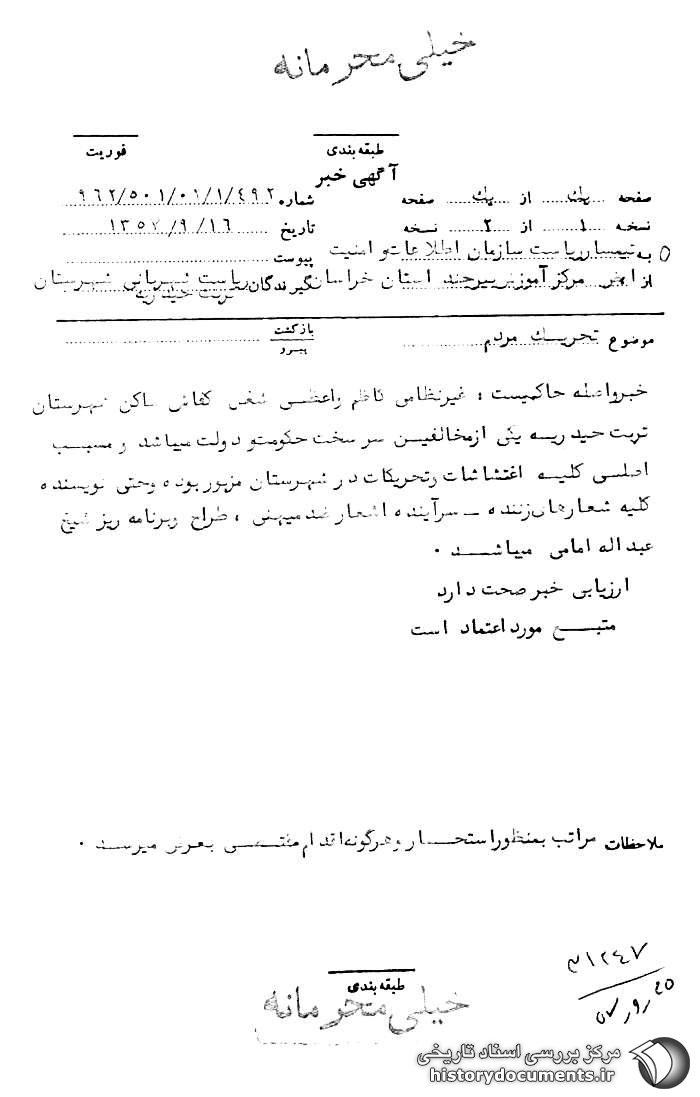 خیلی محرمانه
طبقه‌بندی فوریت
آگهی خبر
صفحه یک از یک صفحه شماره ۹۶۲/۵۰۱/۰۱/۱/۴۹۲
نسخه ۱ از ۲ نسخه تاریخ ۱۳۵۷/۹/۱۶
به تیمسار ریاست سازمان اطلاعات و امنیت پیوست
از مرکز آموزش بیرجند استان خراسان گیرندگان ریاست شهربانی شهرستان تربت حیدریه
موضوع تحریك مردم بازگشت پیرو
خبرواصله حاکیست : غیرنظامی کاظم واعظی شغل کفاش ساکن شهرستان
تربت حیدریه یکی ازمخالفین سرسخت حکومت و دولت میباشد و مسبب
اصلی کلیه اغتشاشات وتحریکات در شهرستان مزبور بوده وحتی نویسنده
کلیه شعارهای زننده ـ سرآینده اشعار ضد میهنی ، طراح وبرنامه ریز شیخ
عبداله امامی میباشد .
ارزیابی خبر صحت دارد
متبع مورد اعتماد است
ملاحظات مراتب بمنظور استحضار وهرگونه اقدام مقتضی بعرض میرسد .
۳۱۲۴۷
طبقه‌بندی
خیلی محرمانه
مرکز بررسی اسناد تاریخی
historydocuments.ir